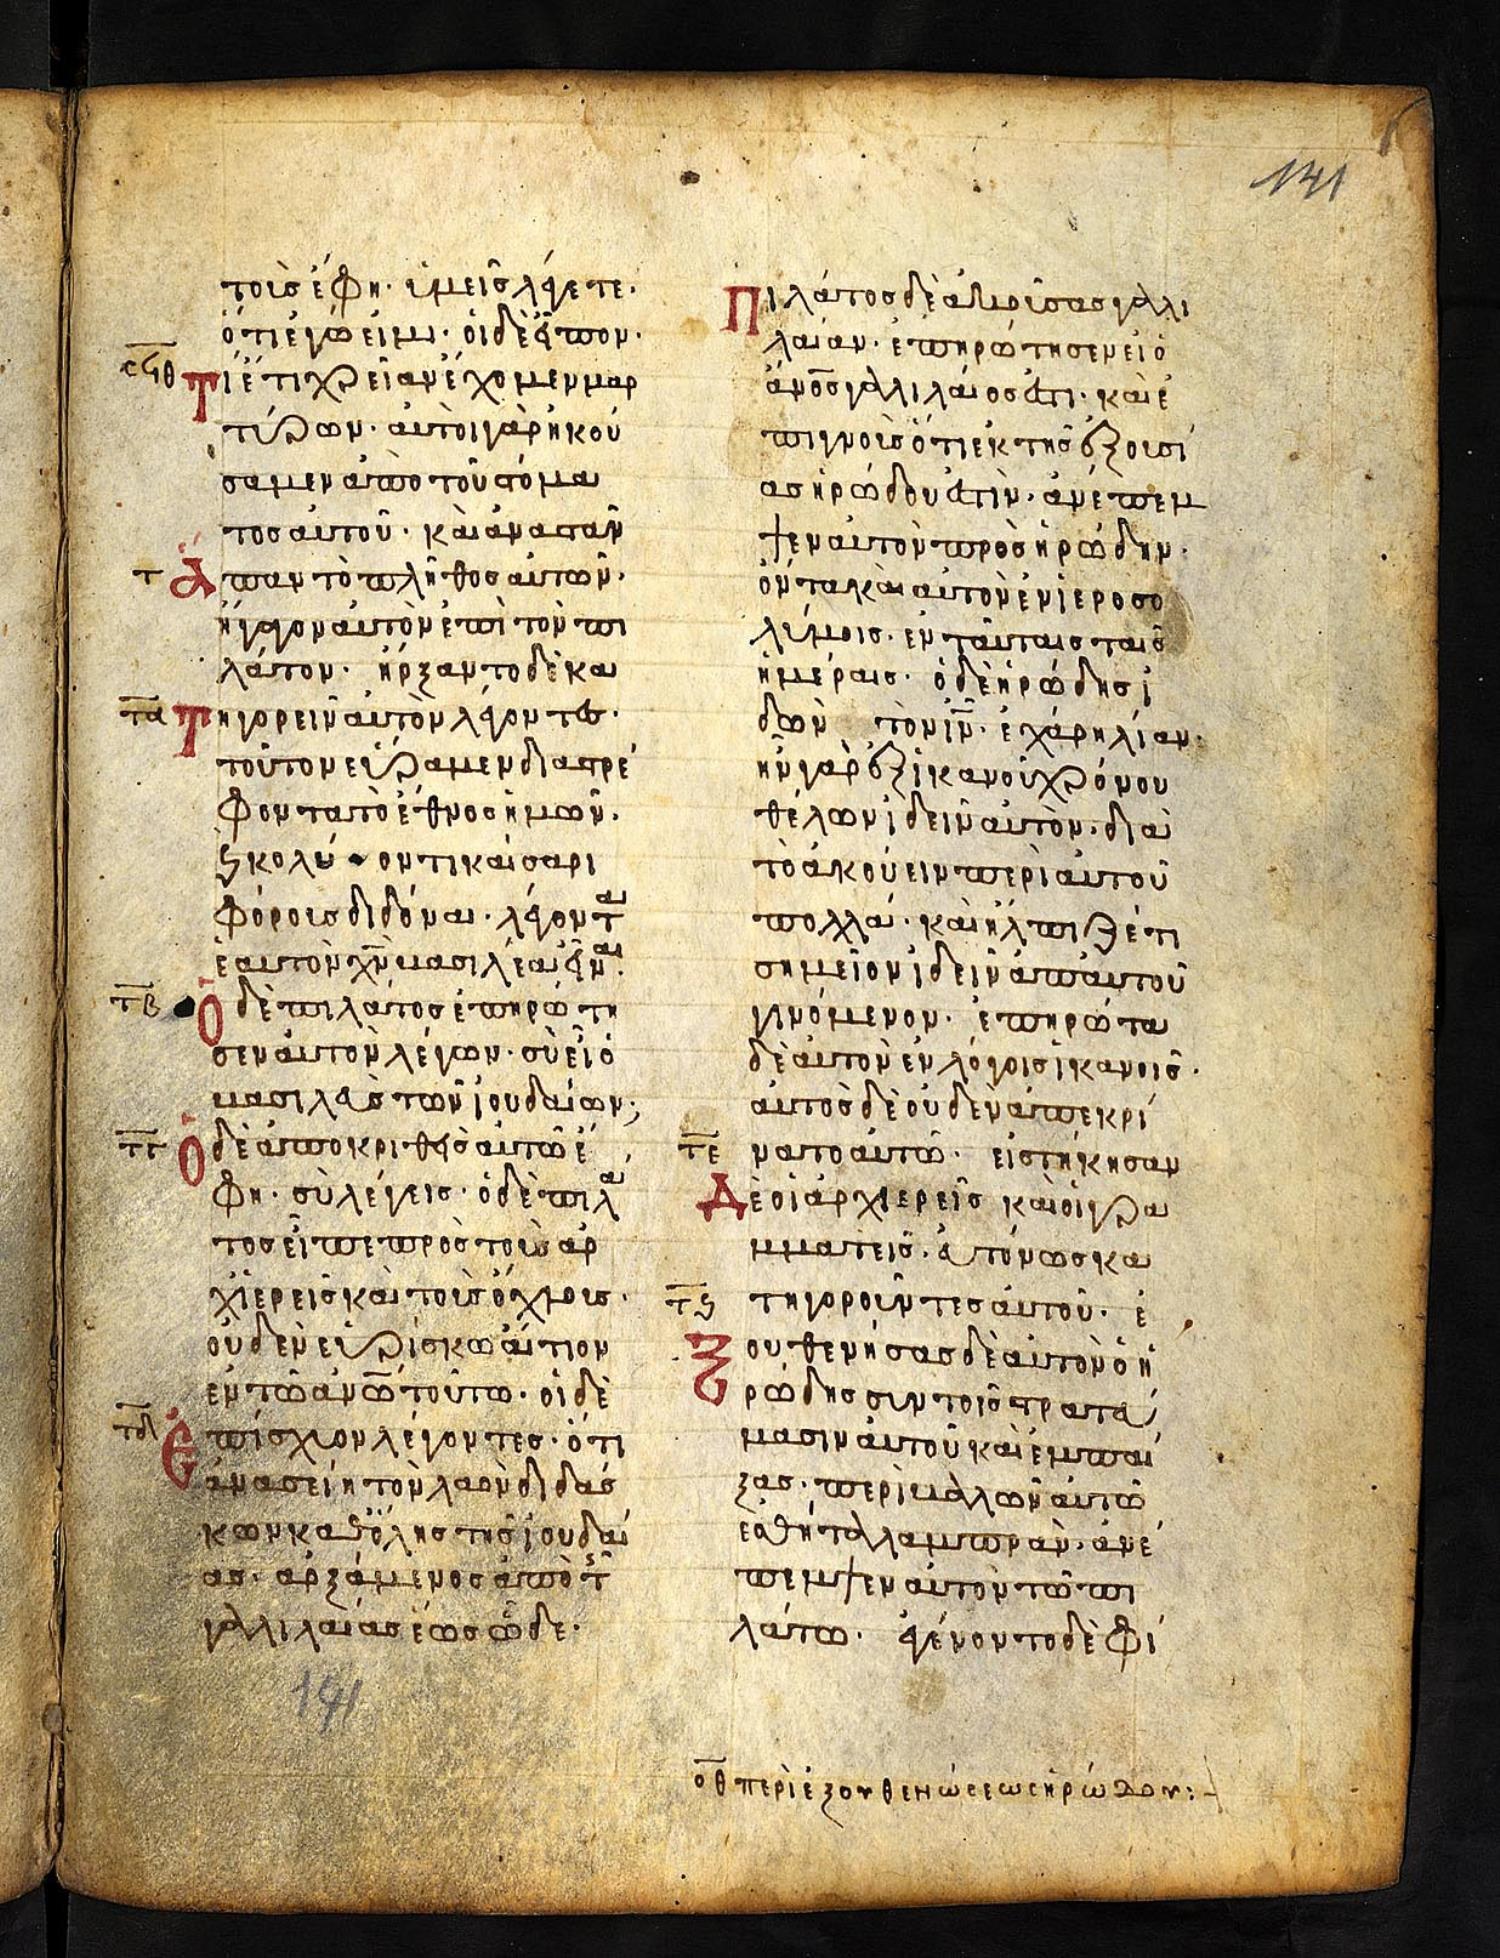 141
τοὺς ἔφη· ὑμεῖς λέγετε·
ὅτι ἐγώ εἰμι· οἱ δὲ εἶπον·
σϟθ τί ἔτι χρείαν ἔχομεν μαρ
τύρων· αὐτοὶ γὰρ ἠκού
σαμεν ἀπὸ τοῦ στόμα
τος αὐτοῦ· καὶ ἀναστὰν
τ ἅπαν τὸ πλῆθος αὐτῶν·
ἤγαγον αὐτὸν ἐπὶ τὸν πι
λάτον· ἤρξαντο δὲ κα
τα τηγορεῖν αὐτὸν λέγοντες·
τοῦτον εὕραμεν διαστρέ
φοντα τὸ ἔθνος ἡμῶν·
ϗ κολύοντι καίσαρι
φόροις διδόναι· λέγοντα
ἑαυτὸν χν βασιλέα εἶναι·
τβ ὁ δὲ πιλάτος ἐπηρώτη
σεν αὐτὸν λέγων· σὺ εἶ ὁ
βασιλεὺς τῶν ἰουδαίων;
τγ ὁ δὲ ἀποκριθεὶς αὐτῶ ἔ
φη· σὺ λέγεις· ὁ δὲ πιλά
τος εἶπε πρὸς τοὺς ἀρ
χιερεῖς καὶ τοὺς ὄχλους·
οὐδὲν εὑρίσκω αἴτιον
ἐν τῶ ἀνω τούτω· οἱ δὲ
τδ ἐπίσχυον λέγοντες· ὅτι
ἀνασείη τὸν λαὸν διδάσ
κων καθ ὅλης τῆς ἰουδαί
ας· ἀρξάμενος ἀπὸ τῆς
γαλλιλαίας ἕως ὧδε·
141
πιλάτος δὲ ἀκούσας γαλλι
λαίαν· ἐπηρώτησεν εἰ ὁ
ἄνος γαλλιλαῖός ἐστι· καὶ ἐ
πιγνοὺς ὅτι ἐκ τῆς ἐξουσί
ας ἡρώδου ἐστὶν· ἀνέπεμ
ψεν αὐτὸν πρὸς ἡρώδην·
ὄντα καὶ αὐτὸν ἐν ἱεροσο
λύμοις· ἐν ταύταις ταῖς
ἡμέραις· ὁ δὲ ἡρώδης ἰ
δὼν τὸν ιν· ἐχάρη λίαν·
ἦν γὰρ ἐξ ἱκανοῦ χρόνου
θέλων ἰδεῖν αὐτὸν· διὰ
τὸ ἀκούειν περὶ αὐτοῦ
πολλά· καὶ ἤλπιζέ τι
σημεῖον ἰδεῖν ἀπ αὐτοῦ
γινόμενον· ἐπηρώτα
δὲ αὐτὸν ἐν λόγοις ἱκανοῖς·
αὐτὸς δὲ οὐδὲν ἀπεκρί
τε νατο αὐτῶ· εἱστήκησαν
δὲ οἱ ἀρχιερεῖς καὶ οἱ γρα
μματεῖς· εὐτόνως κα
τϛ τηγοροῦντες αὐτοῦ· ἐ
ξουθενήσας δὲ αὐτὸν ὁ ἡ
ρώδης σὺν τοῖς στρατεύ
μασιν αὐτοῦ καὶ ἐμπαί
ξας· περιβαλὼν αὐτῶ
ἐσθῆτα λαμπρὰν· ἀνέ
πεμψεν αὐτὸν τῶ πι
λάτω· ἐγένοντο δὲ φί
οθ περὶ ἐξουθενώσεως ἡρώδου: